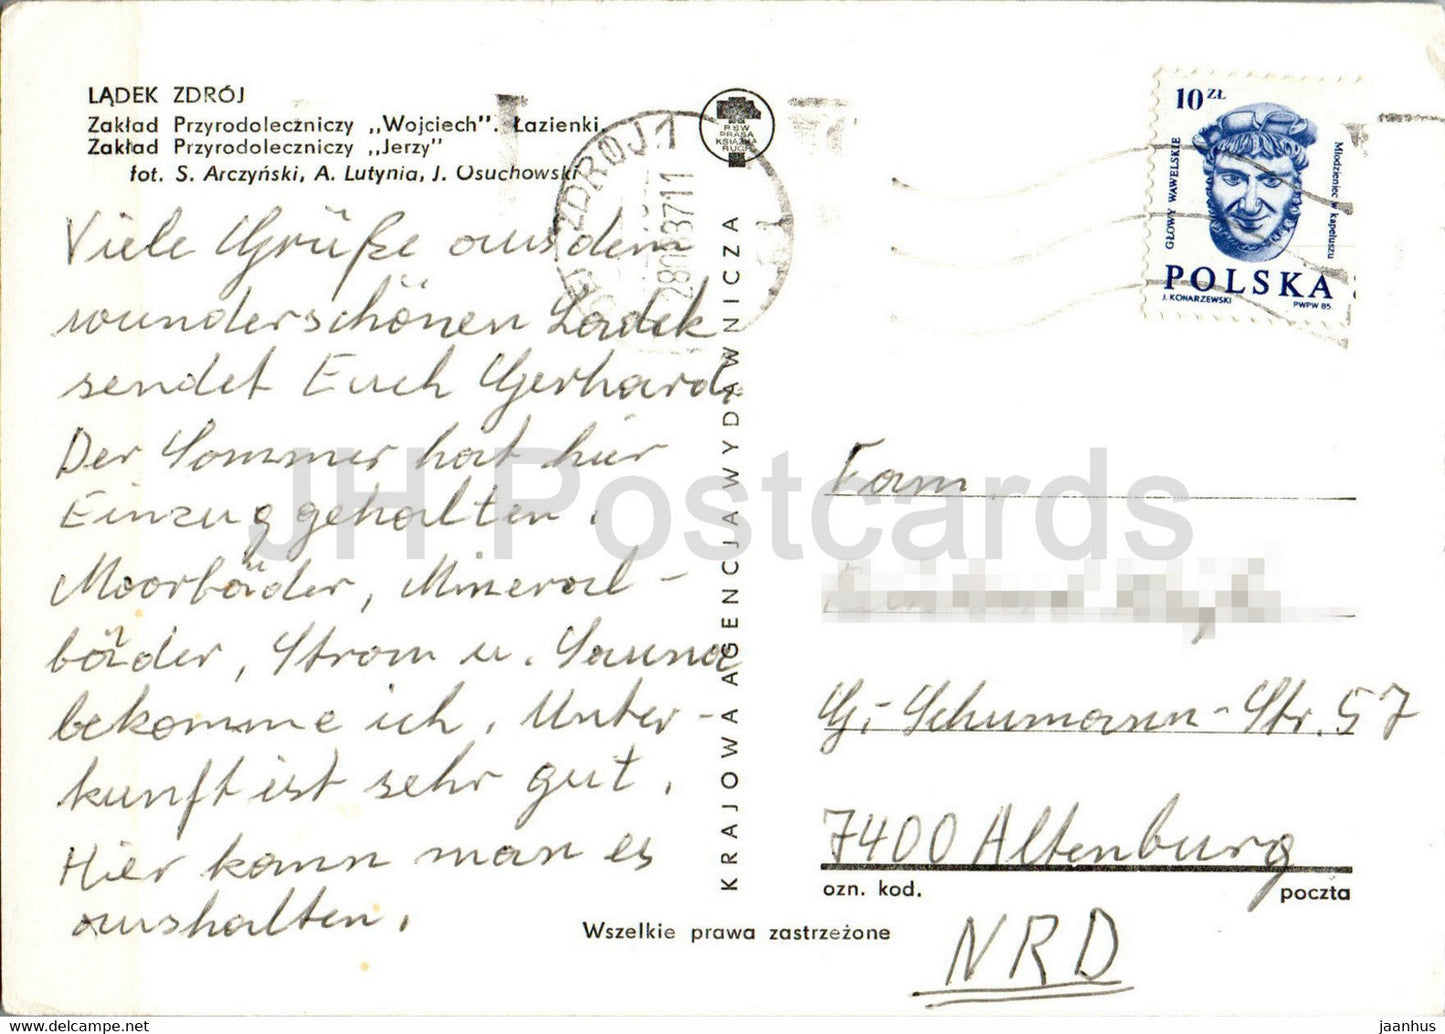 LĄDEK ZDRÓJ
Zakład Przyrodoleczniczy „Wojciech". Łazienki,
Zakład Przyrodoleczniczy „Jerzy"
fot. S. Arczyński, A. Lutynia, J. Osuchowski
Viele Grüße aus dem
wunderschönen Ladek
sendet Euch Gerhard.
Der Sommer hat hier
Einzug gehalten.
Moorbäder, Mineral-
bäder, Strom u. Sauna
bekomme ich. Unter-
kunft ist sehr gut.
Hier kann man es
aushalten.
KRAJOWA AGENCJA WYDAWNICZA
RSW
PRASA
KSIĄŻKA
RUCH
ZDRÓJ 1
10 ZŁ
GŁOWY WAWELSKIE
Młodzieniec w kapeluszu
POLSKA
J. KONARZEWSKI PWPW 85.
Fam.
G.-Schumann-Str. 57
7400 Altenburg
ozn. kod. poczta
NRD
Wszelkie prawa zastrzeżone
JH Postcards
jaanhus